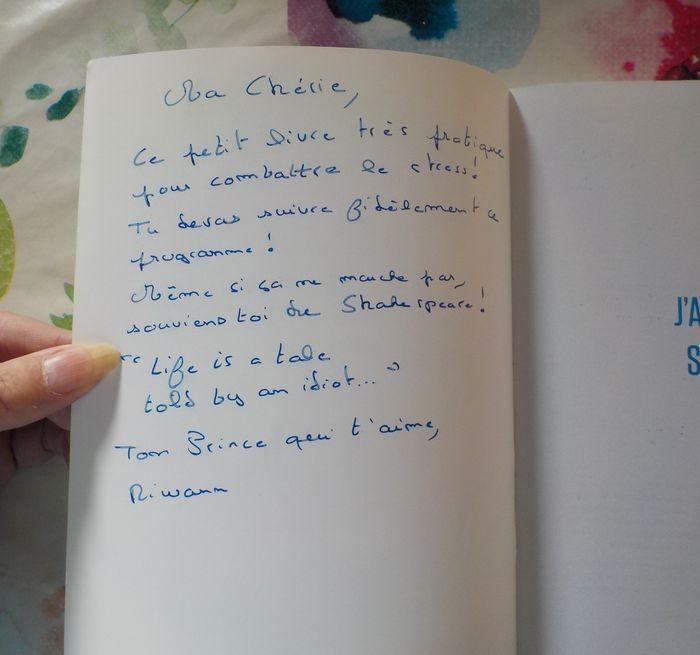 Ma Chérie,
Ce petit livre très pratique
pour combattre le stress!
Tu devras suivre fidèlement ce
programme!
Même si ça ne marche pas,
souviens toi de Shakespeare!
"Life is a tale
told by an idiot..."
Ton Prince qui t'aime,
Riwann
J'A
S